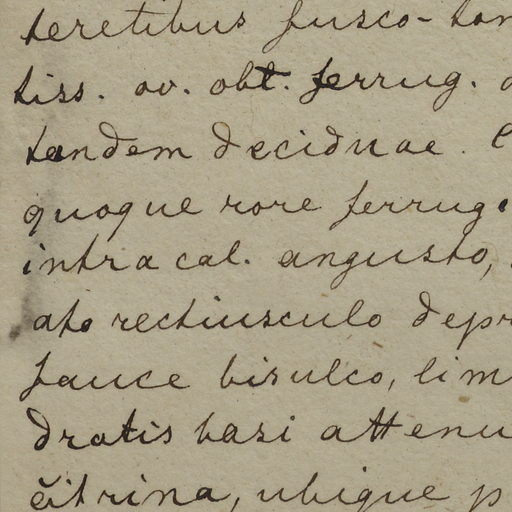 teretibus fusco-tom
tiss. ov. obt. ferrug.
tandem deciduae.
quoque rore ferrug.
intra cal. angusto,
ato rectiusculo depr
fauce bisulco, lim
dratis basi attenu
citrina, ubique p